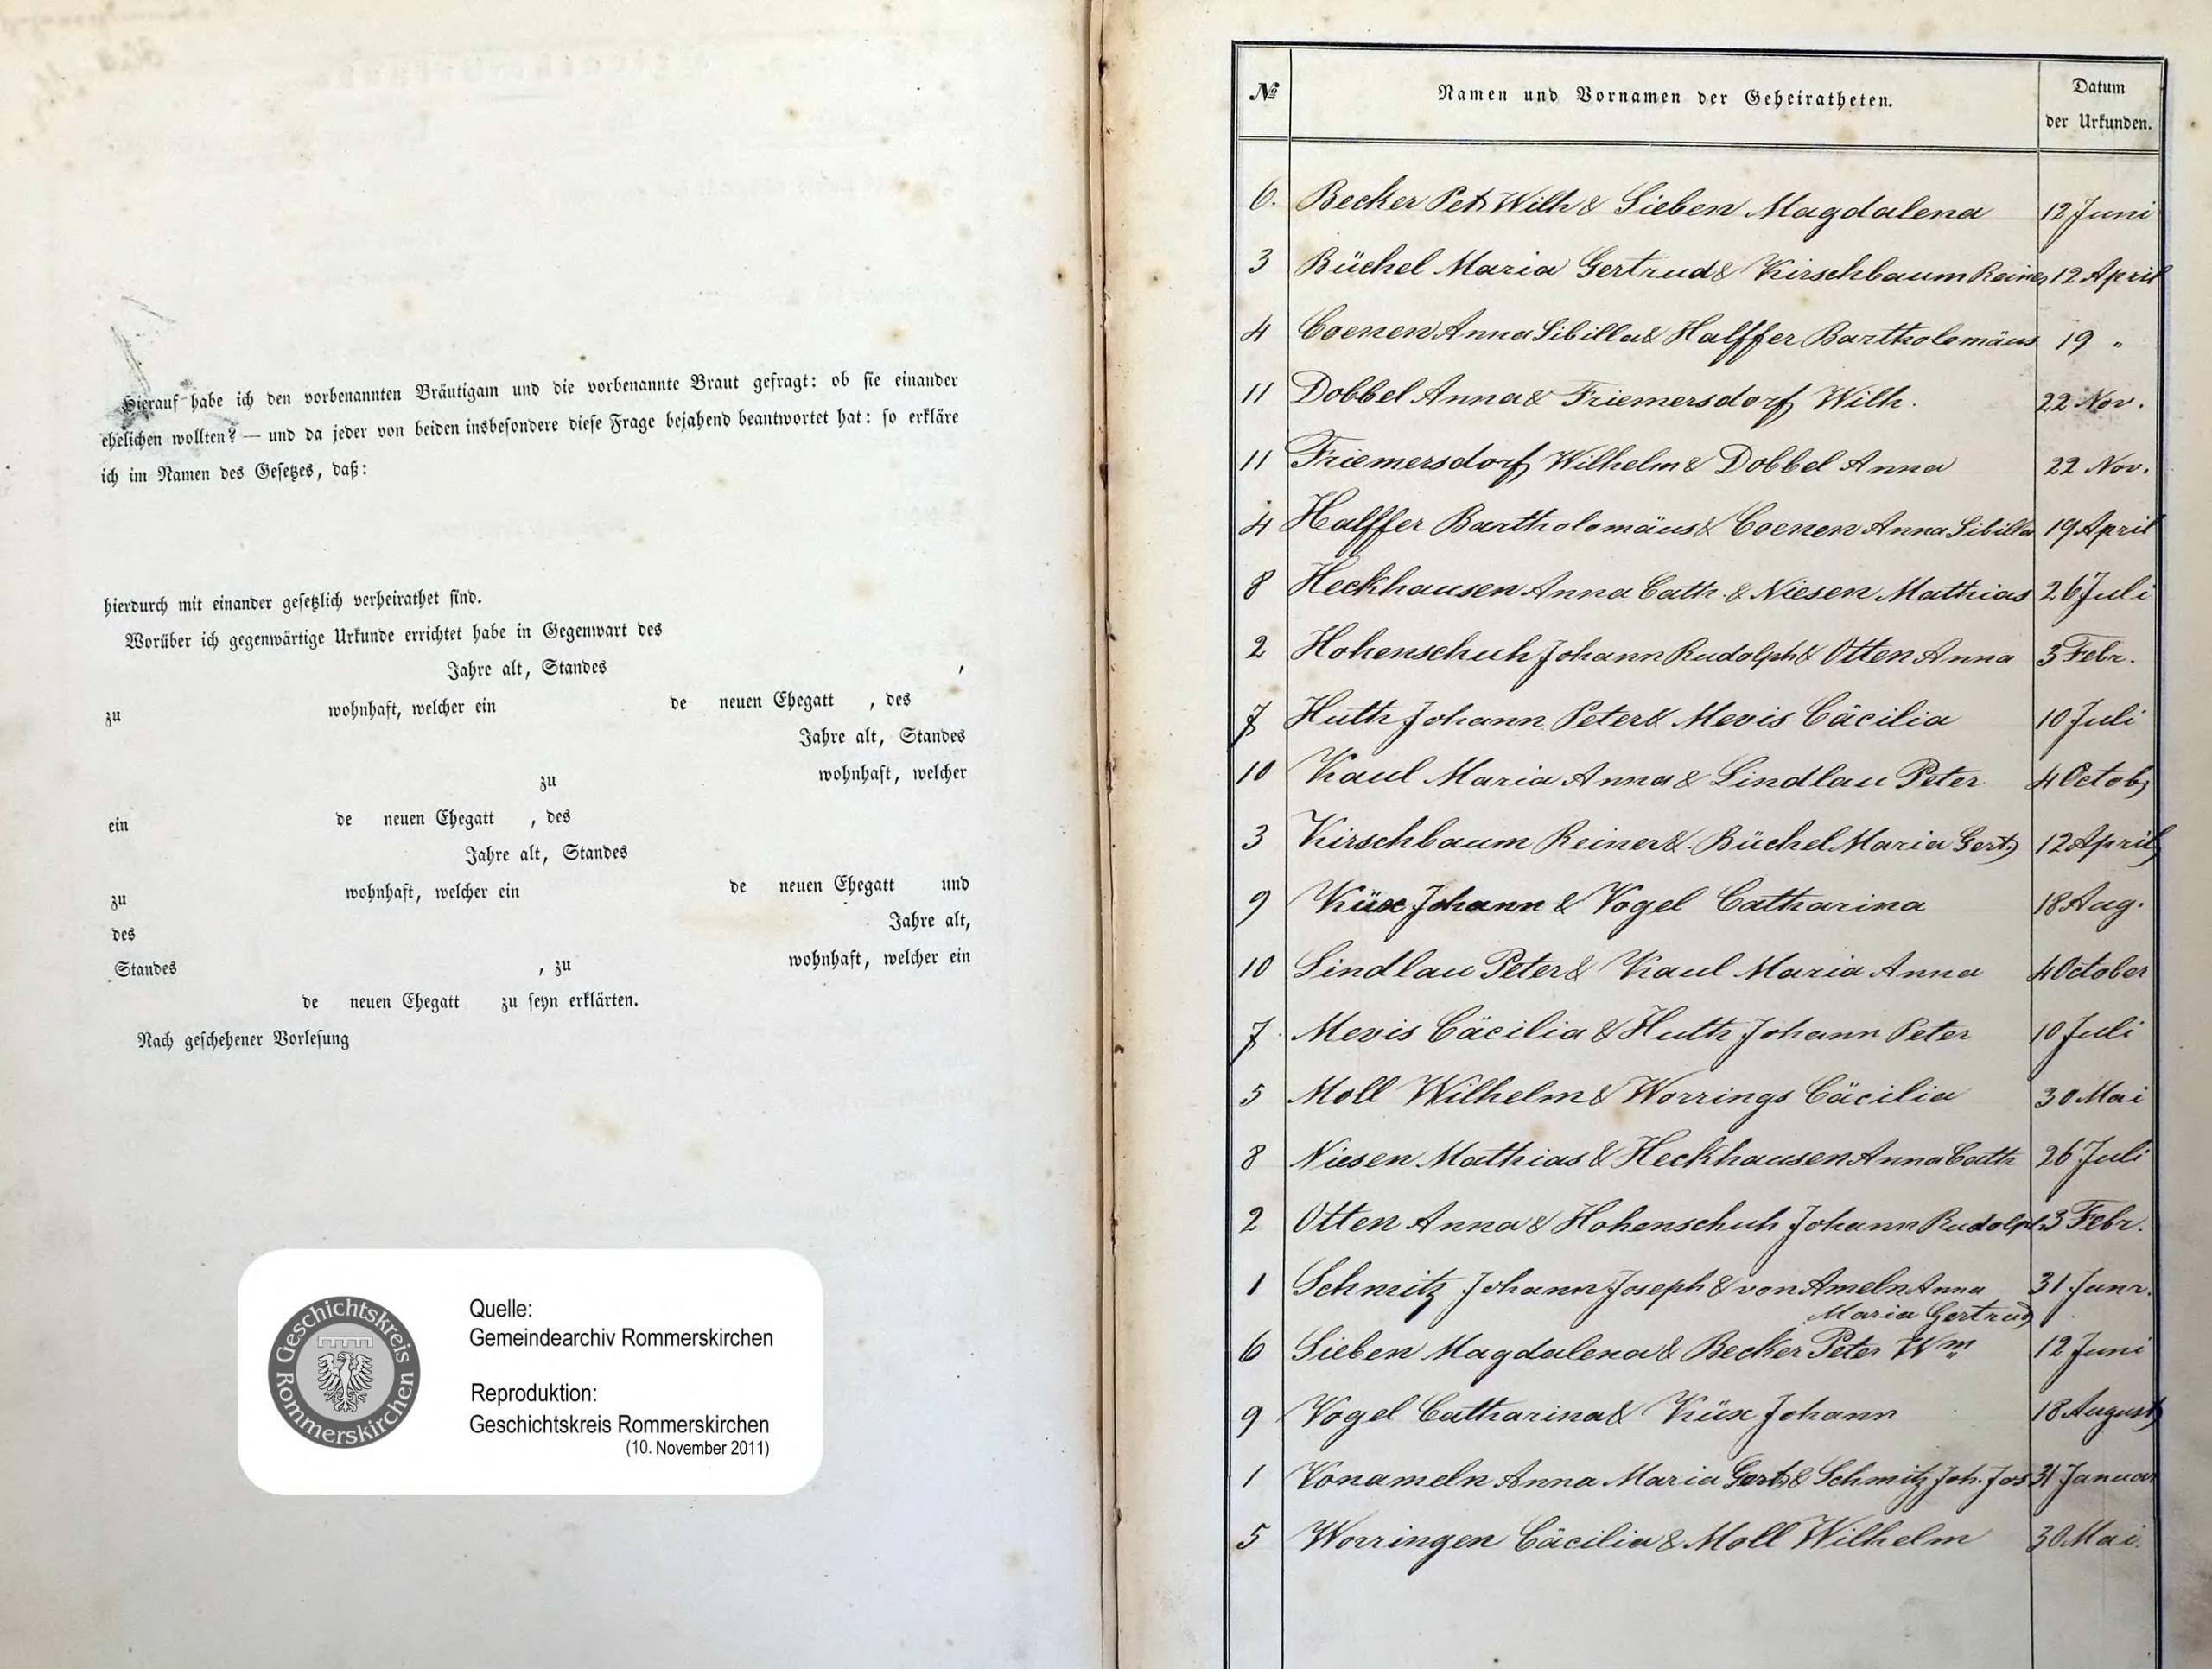 Hierauf habe ich den vorbenannten Bräutigam und die vorbenannte Braut gefragt: ob sie einander
ehelichen wollten? — und da jeder von beiden insbesondere diese Frage bejahend beantwortet hat: so erkläre
ich im Namen des Gesetzes, daß:
hierdurch mit einander gesetzlich verheirathet sind.
Worüber ich gegenwärtige Urkunde errichtet habe in Gegenwart des
Jahre alt, Standes ,
zu wohnhaft, welcher ein de neuen Ehegatt , des
Jahre alt, Standes
zu wohnhaft, welcher
ein de neuen Ehegatt , des
Jahre alt, Standes
zu wohnhaft, welcher ein de neuen Ehegatt und
des Jahre alt,
Standes , zu wohnhaft, welcher ein
de neuen Ehegatt zu seyn erklärten.
Nach geschehener Vorlesung
Geschichtskreis Rommerskirchen
Quelle:
Gemeindearchiv Rommerskirchen
Reproduktion:
Geschichtskreis Rommerskirchen
(10. November 2011)
№ Namen und Vornamen der Geheiratheten. Datum
der Urkunden.
6. Becker Pet Wilh & Sieben Magdalena 12 Juni
3 Büchel Maria Gertrud & Kirschbaum Reiner 12 April
4 Coenen Anna Sibilla & Halffer Bartholomäus 19 "
11 Dobbel Anna & Friemersdorf Wilh. 22 Nov.
11 Friemersdorf Wilhelm & Dobbel Anna 22 Nov.
4 Halffer Bartholomäus & Coenen Anna Sibilla 19 April
8 Heckhausen Anna Cath. & Niesen Mathias 26 Juli
2 Hohenschuh Johann Rudolph & Otten Anna 3 Febr.
7 Huth Johann Peter & Mevis Cäcilia 10 Juli
10 Kaul Maria Anna & Lindlau Peter 4 Octob
3 Kirschbaum Reiner & Büchel Maria Gert. 12 April
9 Küx Johann & Vogel Catharina 18 Aug.
10 Lindlau Peter & Kaul Maria Anna 4 October
7 Mevis Cäcilia & Huth Johann Peter 10 Juli
5 Moll Wilhelm & Worrings Cäcilia 30 Mai
8 Niesen Mathias & Heckhausen Anna Cath 26 Juli
2 Otten Anna & Hohenschuh Johann Rudolph 3 Febr.
1 Schmitz Johann Joseph & von Ameln Anna 31 Janr.
Maria Gertrud
6 Sieben Magdalena & Becker Peter Wm 12 Juni
9 Vogel Catharina & Küx Johann 18 August
1 Vonameln Anna Maria Gert. & Schmitz Joh. Jos 31 Januar
5 Worringen Cäcilia & Moll Wilhelm 30 Mai.